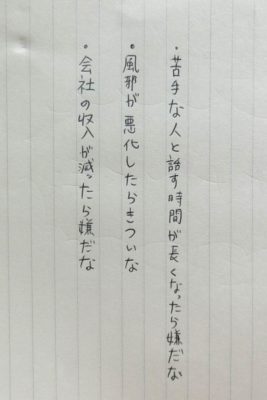 ・苦手な人と話す時間が長くなったら嫌だな
・風邪が悪化したらきついな
・会社の収入が減ったら嫌だな